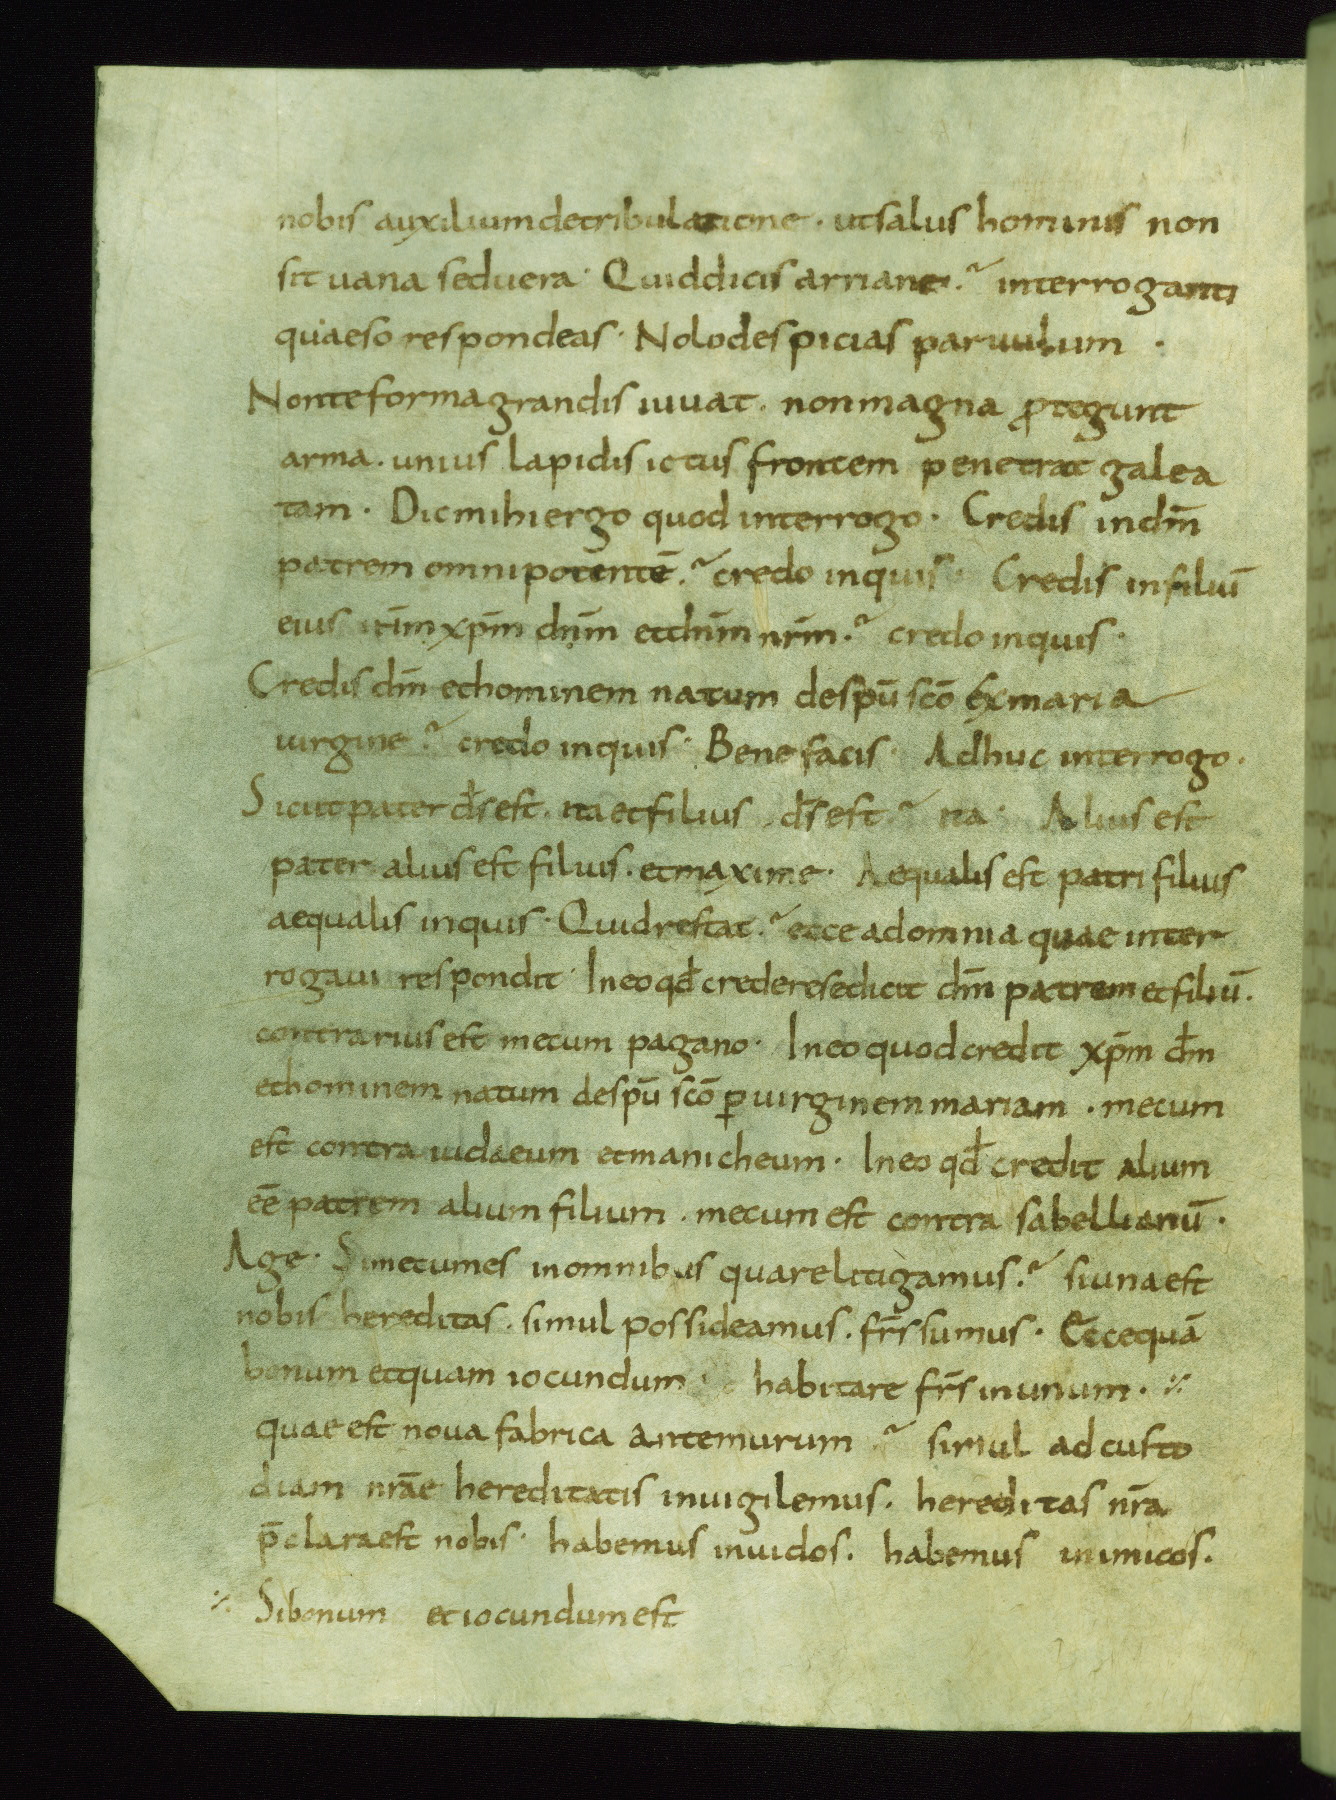 nobis auxilium detribulatione · utsalus hominis non
sit uana seduera · Quiddicis arriane ·? interroganti
quaeso respondeas · Nolodespicias paruulum ·
Nonteforma grandis iuuat · nonmagna ꝓtegunt
arma · unius lapidis ictus frontem penetrat galea
tam · Dicmihi ergo quod interrogo · Credis indm̄
patrem omnipotentē ·? credo inquis · Credis infiliū
eius ih̄m xp̄m dn̄m etdn̄m nr̄m ·? credo inquis ·
Credis dm̄ ethominem natum despū scō exmaria
uirgine ·? credo inquis · Bene facis · Adhuc interrogo ·
Sicut pater d̄s est · ita etfilius d̄s est ? ita · Alius est
pater alius est filius · etmaxime · Aequalis est patri filius
aequalis inquis · Quidrestat ·? ecce adomnia quae inter
rogaui respondit · Ineo qd̄ crederesedicit dm̄ patrem etfiliū ·
contrarius est mecum pagano · Ineo quod credit xp̄m dm̄
ethominem natum despū scō ꝑ uirginem mariam · mecum
est contra iudaeum etmanicheum · Ineo qd̄ credit alium
eē patrem alium filium · mecum est contra sabellianū ·
Age · Simecumes inomnibus quare litigamus ·? siuna est
nobis hereditas · simul possideamus · fr̄s sumus · Eccequā
bonum etquam iocundum · habitare fr̄s inunum · ⁒
quae est noua fabrica antemurum ? simul adcusto
diam nr̄ae hereditatis inuigilemus · hereditas nr̄a
p̄claraest nobis · habemus inuidos · habemus inimicos ·
⁒ Sibonum etiocundumest